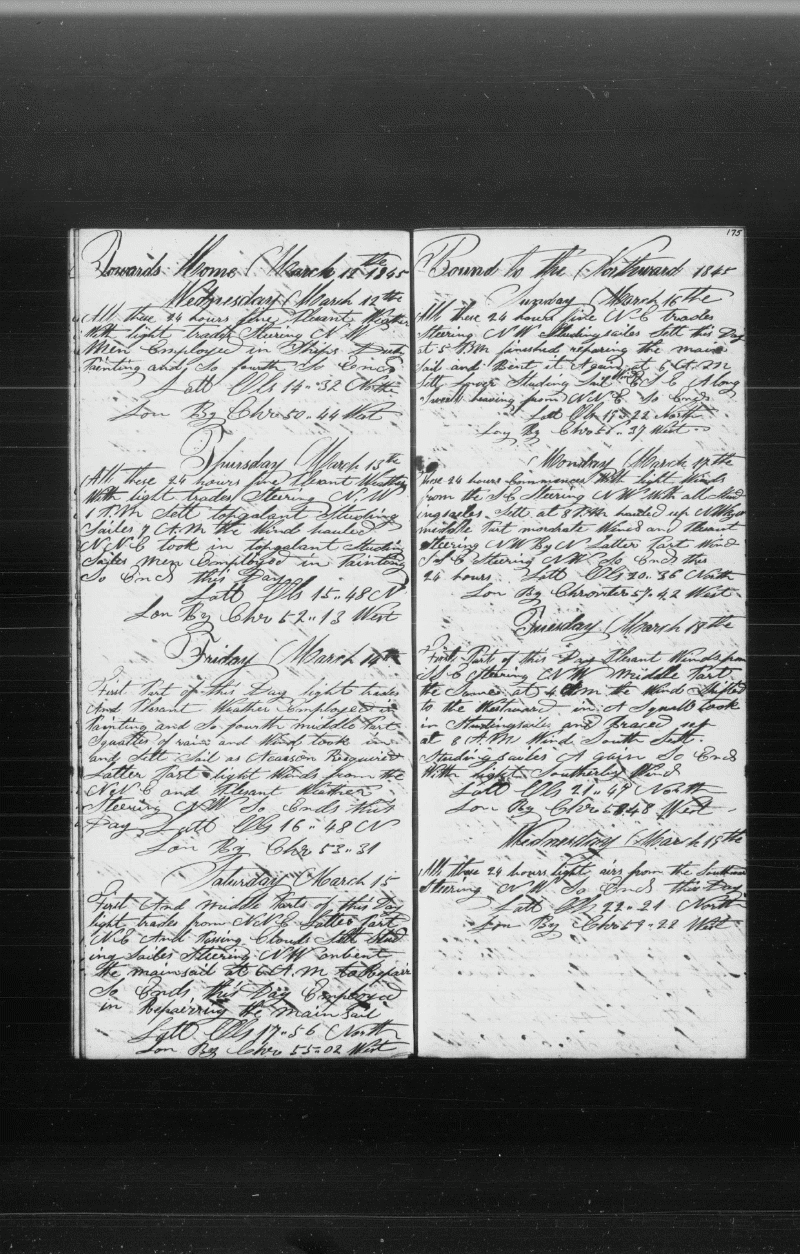 Towards Home March 12th 1845
Wednesday March 12th
All these 24 hours fine Plesant Weather
With light trades Steering N W
Men Employed in Ships Duty
Painting and So fourth So Ends
Latt Obs 14" 32 North
Lon By Chro 50" 44 West
Thursday March 13th
All these 24 hours fine Plesant Weather
With light trades Steering N W
1 P.M Sett topgalant Studing
Sailes 7 A.M the Wind hauled
N N E took in topgalant Studing
Sailes Men Employed in Painting
So Ends this Day
Latt Obs 15" 48 N
Lon By Chro 52" 13 West
Friday March 14th
First Part of this Day light trades
And Plesant Weather Employed in
Painting and So fourth middle Part
Squalles of rain and Wind took in
and Sett Sail as Neasson Requiered
Latter Part light Winds from the
N N E and Plesant Weather
Steering N W So Ends this
Day Latt Obs 16" 48 N
Lon By Chr 53" 31
Saturday March 15
First And middle Parts of this Day
light trades from N N E Latter Part
N E And Passing Clouds Sett Stud
ing Sailes Steering N W onbent
the mainsail at 6 A.M to Repair
So Ends this Day Employed
in Repairring the main Sail
Latt Obs 17" 56 North
Lon By Chro 55" 02 West
175
Bound to the Northward 1845
Sunday March 16 the
All these 24 hours fine N E trades
Steering N W Studingsailes Sett this Day
at 5 P.M finished reparing the main
Sail and Bent it Again at 6 A.M
Sett Lower Studing Sail E S E A long
Swell heaving from N N E So Ends
Latt Obs 19" 22 North
Lon By Chro 56" 37 West
Monday March 17 the
these 24 hours Commences With light Winds
from the S E Steering N W With all Stud
ingsailes Sett at 8 P.M hauled up
middle Part modrate Winds and Plesant
Steering N W By N Latter Part Wind
S S E Steering N W So Ends thes
24 hours Latt Obs 20" 36 North
Lon By Chronter 57" 42 West
Tuesday March 18 the
First Part of this Day Plesant Winds from
S S E Steering N W Middle Part
the Same at 4 A m the Wind Shifted
to the Westward in A Squall took
in Studingsailes and Braced up
at 8 A.M Wind South Sett
Studingsailes A gain So Ends
With light Southerly Wind
Latt Obs 21" 47 North
Lon By Chro 58 48 West
Wednesday March 15 the
All these 24 hours light airs from the Southward
Steering N W So Ends this Day
Latt Obs 22" 21 North
Lon By Chro 59" 22 West